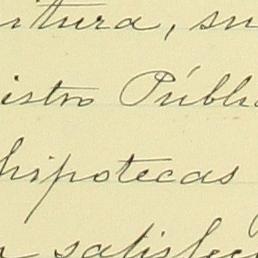 itura, su
istro Públi
hipotecas
satisfec